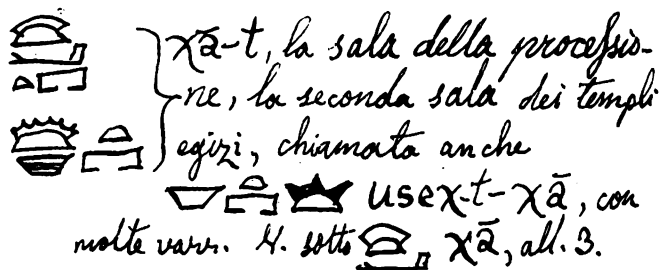 χā-t, la sala della proceſsio-
ne, la seconda sala dei templi
egizi, chiamata anche
useχ-t-χā, con
molte varr. V. sotto χā, all. 3.